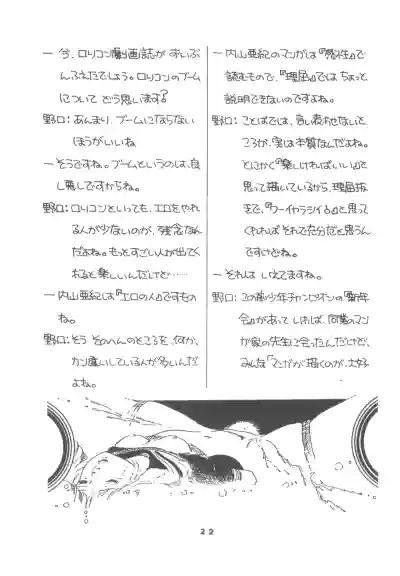 ― 今、ロリコン劇画誌がずいぶ
んふえたでしょう。ロリコンのブーム
について どう思います?
野口: あんまり、ブームにはならない
ほうがいいね
― そうですね。ブームというのは、良
し悪しですからね。
野口: ロリコンといっても、エロをやれ
る人が少ないのが、残念なん
だよね。もっとすごい人が出てく
れると楽しいんだけど……
― 内山亜紀は『エロの人』ですもの
ね。
野口: そう そのへんのところを、何か、
カン違いしている人が多いんだ
よね。
― 内山亜紀のマンガは『感性』で
読むもので、『理屈』ではちょっと
説明できないのですよね。
野口: ことばでは、言い表わせないと
ころが、実は本質なんだよね。
とにかく『楽しければいい』と
思って描いているから、理屈抜
きで、『ワーイヤラシイ』と思って
くれればそれで充分だと思うん
ですけどね。
― それは いえてますね。
野口: この前、少年チャンピオンの『新年
会』があって
が家の先生に会ったんだけど、
みんな『マンガが描くのが、大好
22